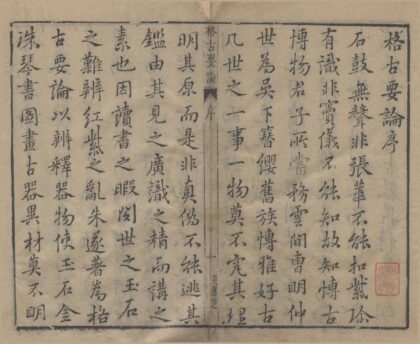 格古要論序
石鼓無聲非張華不能扣紫珍
有識非竇儀不能知故知博古
博物君子所當務雲間曹明仲
世為吳下簪纓舊族博雅好古
凡世之一事一物莫不究其理
格古要論 序 一
明其原而是非真偽不能逃其
鑑由其見之廣識之精而講之
素也因讀書之暇閱世之玉石
之難辨紅紫之亂朱遂著為格
古要論以辨釋器物使玉石金
珠琴書圖畫古器異材莫不明